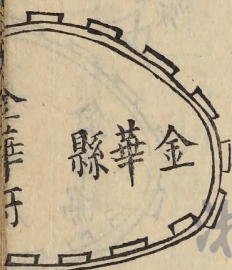 金華縣
金華府